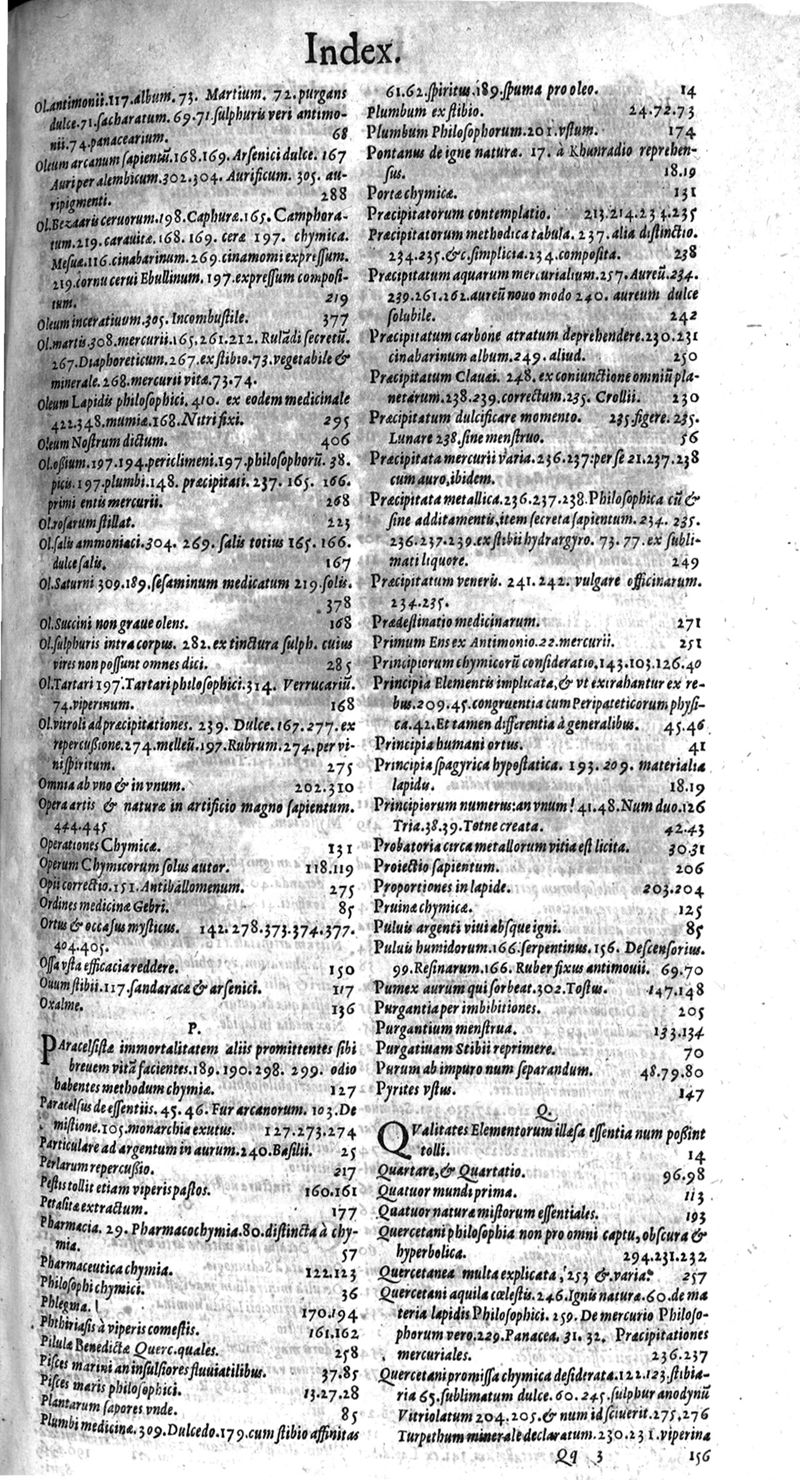 Index.
Ol.antimonii.117.album.73. Martium. 72.purgans
dulce.71.sacharatum.69.71.sulphuris veri antimo-
nii.74.panacearium. 68
Oleum arcanum sapientū.168.169. Arsenici dulce. 167
Auri per alembicum.302.304. Aurificum. 305. au-
ripigmenti. 288
Ol.Bezaaris ceruorum.198.Caphuræ.165. Camphora-
tum.219.carauitæ.168.169. ceræ 197. chymica.
Mesuæ.116.cinabarinum.269.cinamomi expressum.
219.cornu cerui Ebullinum.197.expressum composi-
tum. 219
Oleum inceratiuum.305. Incombustile. 377
Ol.martis 308.mercurii.165.261.212. Rulādi secretū.
267.Diaphoreticum.267.ex stibio.73.vegetabile &
minerale.268.mercurii vitæ.73.74.
Oleum Lapidis philosophici. 410. ex eodem medicinale
422.348.mumiæ.168.Nutri fixi. 295
Oleum Nostrum dictum. 406
Ol.ossium.197.194.periclimeni.197.philosophorū. 38.
picis.197.plumbi.148. præcipitati. 237. 165. 166.
primi entis mercurii. 268
Ol.rosarum stillat. 223
Ol.salis ammoniaci.304. 269. salis totius 165. 166.
dulce salis. 167
Ol.Saturni 309.189.sesaminum medicatum 219.solis.
378
Ol.Succini non graue olens. 168
Ol.sulphuris intra corpus. 282.ex tinctura sulph. cuius
vires non possunt omnes dici. 285
Ol.Tartari 197.Tartari philosophici.314. Verrucariū.
74.viperinum. 168
Ol.vitroli ad præcipitationes. 239. Dulce.167.277.ex
repercussione.274.melleū.197.Rubrum.274.per vi-
ni spiritum. 275
Omnia ab vno & in vnum. 202.310
Opera artis & naturæ in artificio magno sapientum.
444.445
Operationes Chymicæ. 131
Operum Chymicorum solus autor. 118.119
Opii correctio.151.Antiballomenum. 275
Ordines medicinæ Gebri. 85
Ortus & occasus mysticus. 142.278.373.374.377.
404.405.
Ossa vsta efficacia reddere. 150
Ouum stibii.117.sandaracæ & arsenici. 117
Oxalme. 136
P.
PAracelsistæ immortalitatem aliis promittentes sibi
breuem vitā facientes.189. 190. 298. 299. odio
habentes methodum chymiæ. 127
Paracelsus de essentiis. 45. 46. Fur arcanorum. 103.De
mistione.105.monarchia exutus. 127.273.274
Particulare ad argentum in aurum.240.Basilii. 25
Perlarum repercussio. 217
Pestis tollit etiam viperis pastos. 160.161
Petasitæ extractum. 177
Pharmacia. 29. Pharmacochymia.80.distincta à chy-
mia. 57
Pharmaceutica chymia. 122.123
Philosophi chymici. 36
Phlegma. 170.194
Phthiriasis à viperis comestis. 161.162
Pilulæ Benedictæ Querc.quales. 258
Pisces marini an insulsiores fluuiatilibus. 37.85
Pisces maris philosophici. 13.27.28
Plantarum sapores vnde. 85
Plumbi medicinæ. 309.Dulcedo.179.cum stibio affinitas
61.62.spiritus.189.spuma pro oleo. 14
Plumbum ex stibio. 24.72.73
Plumbum Philosophorum.201.vstum. 174
Pontanus de igne naturæ. 17. à Khunradio reprehen-
sus. 18.19
Portæ chymicæ. 131
Præcipitatorum contemplatio. 213.214.234.235
Præcipitatorum methodica tabula. 237. alia distinctio.
234.235.&c.simplicia.234.composita. 238
Præcipitatum aquarum mercurialium.257. Aureū.234.
239.261.262.aureū nouo modo 240. aureum dulce
solubile. 242
Præcipitatum carbone atratum deprehendere.230.231
cinabarinum album.249. aliud. 250
Præcipitatum Clauei. 248. ex coniunctione omniū pla-
netarum.238.239.correctum.235. Crollii. 230
Præcipitatum dulcificare momento. 235.figere. 235.
Lunare 238.sine menstruo. 56
Præcipitata mercurii varia.236.237:per se 21.237.238
cum auro,ibidem.
Præcipitata metallica.236.237.238.Philosophica cū &
sine additamentis,item secreta sapientum. 234. 235.
236.237.239.ex stibii hydrargyro. 73. 77.ex subli-
mati liquore. 249
Præcipitatum veneris. 241. 242. vulgare officinarum.
234.235.
Prædestinatio medicinarum. 271
Primum Ens ex Antimonio.22.mercurii. 251
Principiorum chymicorū consideratio.143.103.126.40
Principia Elementis implicata,& vt extrahantur ex re-
bus.209.45.congruentia cum Peripateticorum physi-
ca.42.Et tamen differentia à generalibus. 45.46
Principia humani ortus. 41
Principia spagyrica hypostatica. 193. 209. materialia
lapidis. 18.19
Principiorum numerus:an vnum! 41.48.Num duo.126
Tria.38.39.Totne creata. 42.43
Probatoria circa metallorum vitia est licita. 30.31
Proiectio sapientum. 206
Proportiones in lapide. 203.204
Pruina chymicæ. 125
Puluis argenti viui absque igni. 85
Puluis humidorum.166.serpentinus.156. Descensorius.
99.Resinarum.166. Ruber fixus antimouii. 69.70
Pumex aurum qui sorbeat.302.Tostus. 147.148
Purgantia per imbibitiones. 205
Purgantium menstrua. 133.134
Purgatiuam Stibii reprimere. 70
Purum ab impuro num separandum. 48.79.80
Pyrites vstus. 147
Q.
QValitates Elementorum illæsa essentia num possint
tolli. 14
Quartare,& Quartatio. 96.98
Quatuor mundi prima. 113
Quatuor naturæ mistorum essentiales. 193
Quercetani philosophia non pro omni captu,obscura &
hyperbolica. 294.231.232
Quercetanea multa explicata,253 & varia. 257
Quercetani aquila cœlestis.246.Ignis naturæ.60.de ma
teria lapidis Philosophici. 259.De mercurio Philoso-
phorum vero.229.Panacea. 31. 32. Præcipitationes
mercuriales. 236.237
Quercetani promissa chymica desiderata.122.123.stibia-
ria 65.sublimatum dulce.60.245.sulphur anodynū
Vitriolatum 204.205.& num id sciuerit.275.276
Turpethum minerale declaratum.230.231.viperina
Qq 3 156